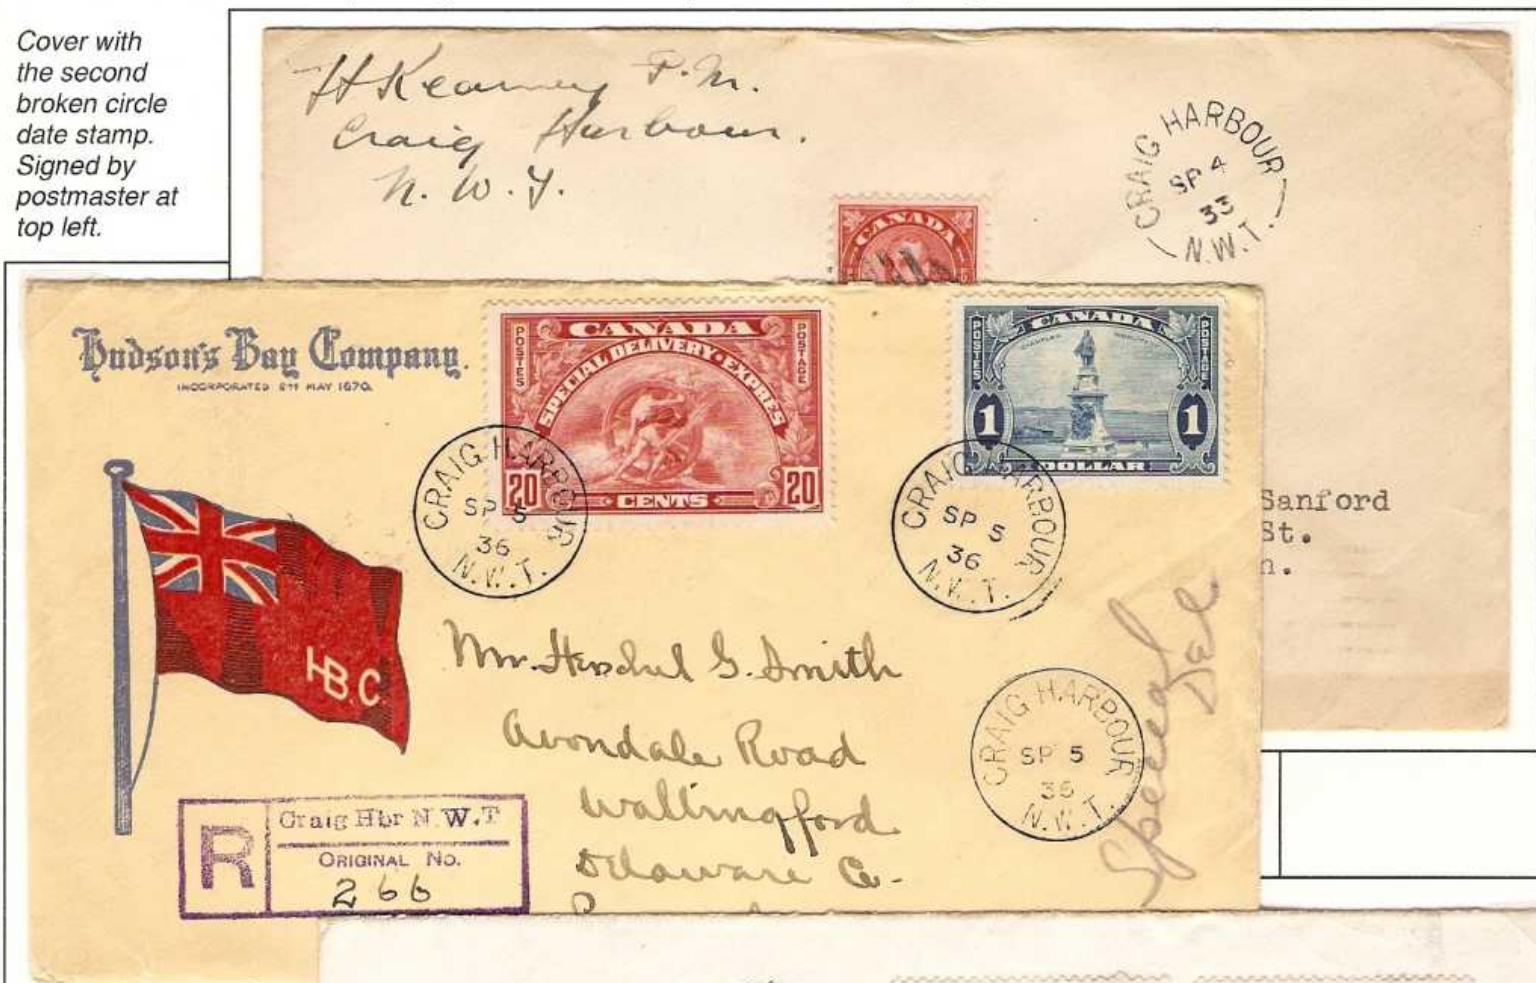 Cover with
the second
broken circle
date stamp.
Signed by
postmaster at
top left.
H Kearney P.M.
Craig Harbour.
N.W.T.
CANADA
CRAIG HARBOUR
SP 4
33
N.W.T.
Sanford
St.
n.
Hudson's Bay Company.
INCORPORATED 2ND MAY 1670.
HBC
CANADA
POSTES
POSTAGE
SPECIAL DELIVERY · EXPRES
20 CENTS 20
CRAIG HARBOUR
SP 5
36
N.W.T.
CANADA
POSTES
POSTAGE
1 1
DOLLAR
CRAIG HARBOUR
SP 5
36
N.W.T.
Mr. Herschel G. Smith
Avondale Road
Wallingford
Delaware Co.
CRAIG HARBOUR
SP 5
36
N.W.T.
Special
Del
R
Craig Hbr N.W.T
ORIGINAL No.
266